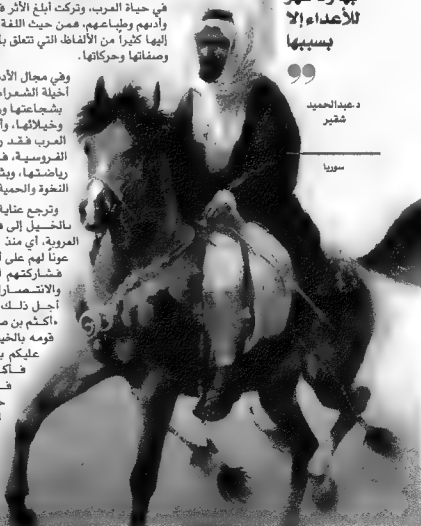 في حياة العرب، وتركت أبلغ الأثر
وأدبهم وطباعهم، فمن حيث اللغة
إليها كثيراً من الألفاظ، التي تتعلق
وصفاتها وحركاتها.
وفي مجال الأد
أخيلة الشعراء
بشجاعتها و
وخيلائها، وأ
العرب فقد ر
الفروسية، ف
رياضتها، وبث
النخوة والحمية
وترجع عناية
بالخيل إلى
العروبة، أي منذ
عوناً لهم على
فشاركتهم
والانتصار
أجل ذلك
«أكثم بن ص
قومه بالخي
عليكم ب
فأك
للأعداء إلا
بسببها
د.عبدالحميد
شقير
سوريا